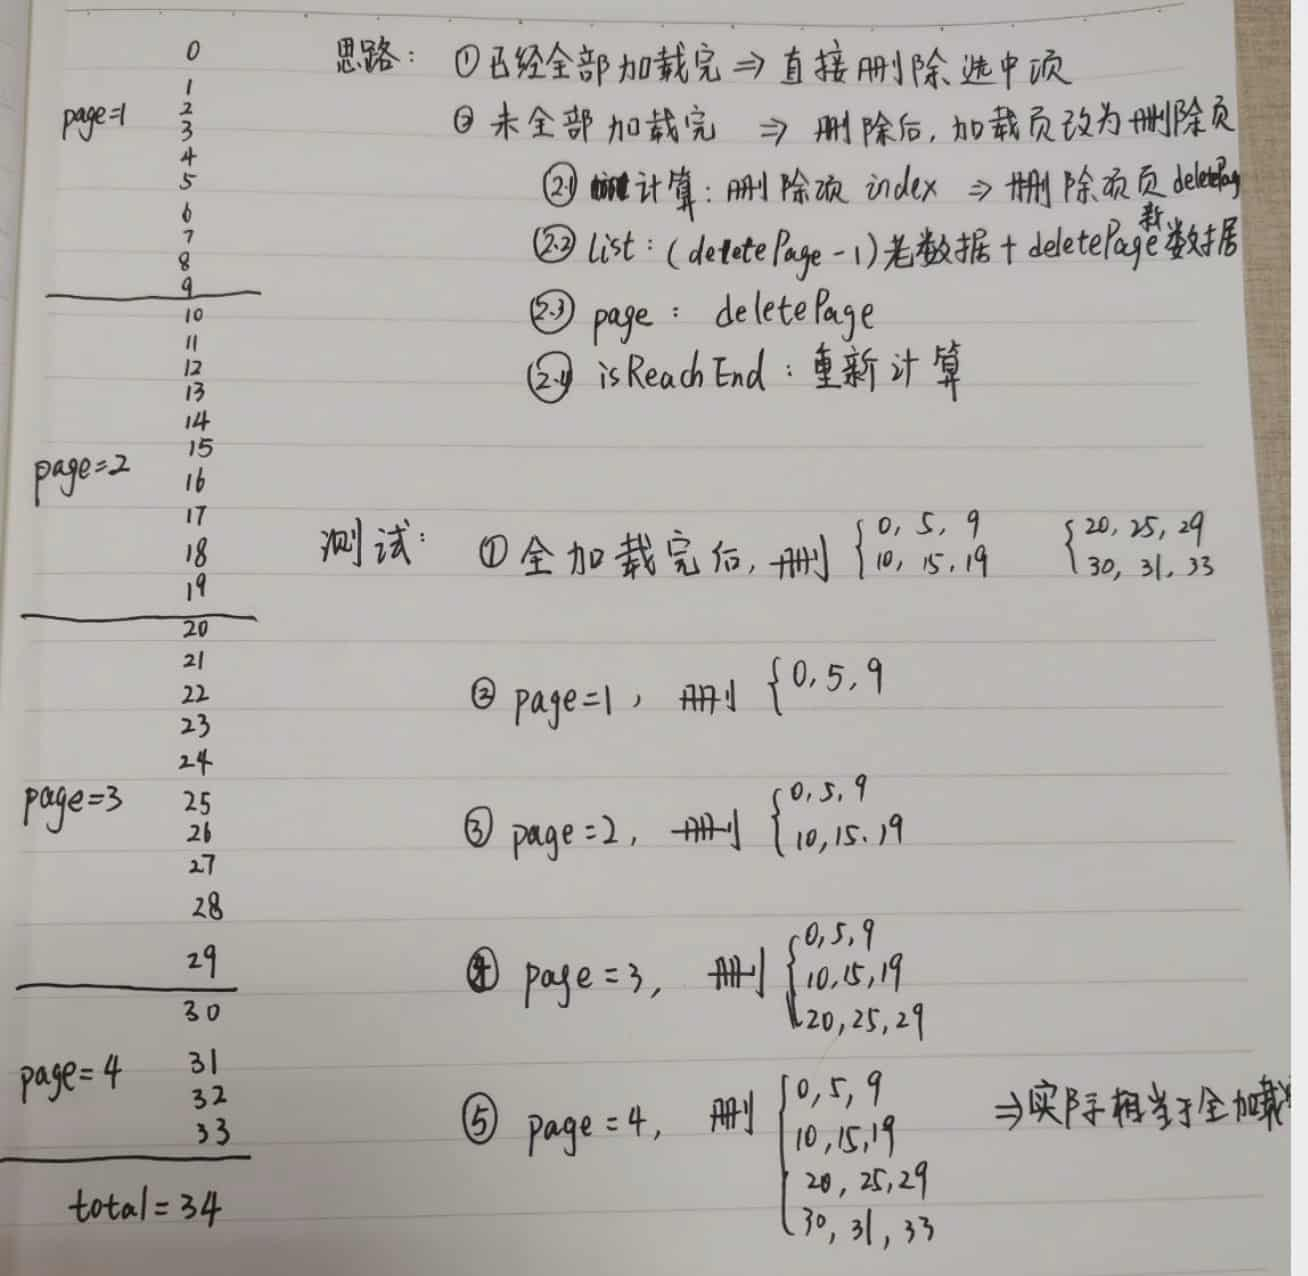 0
1
page=1
2
3
4
5
6
7
8
9
10
11
12
13
14
15
page=2
16
17
18
19
20
21
22
23
24
page=3
25
26
27
28
29
30
page=4
31
32
33
total=34
思路: ①已经全部加载完⇒直接删除选中项
②未全部加载完 ⇒ 删除后,加载页改为删除页
(2.1) 计算:删除项 index ⇒ 删除项页 deletePag
(2.2) list:(deletePage-1)老数据+deletePage新数据
(2.3) page: deletePage
(2.4) isReachEnd:重新计算
测试: ①全加载完后,删{0, 5, 9 {20, 25, 29
10, 15, 19 30, 31, 33
② page=1, 删{0, 5, 9
③ page=2, 删{0, 5, 9
10, 15, 19
④ page=3, 删{0, 5, 9
10, 15, 19
20, 25, 29
⑤ page=4, 删{0, 5, 9 ⇒实际相当于全加载
10, 15, 19
20, 25, 29
30, 31, 33